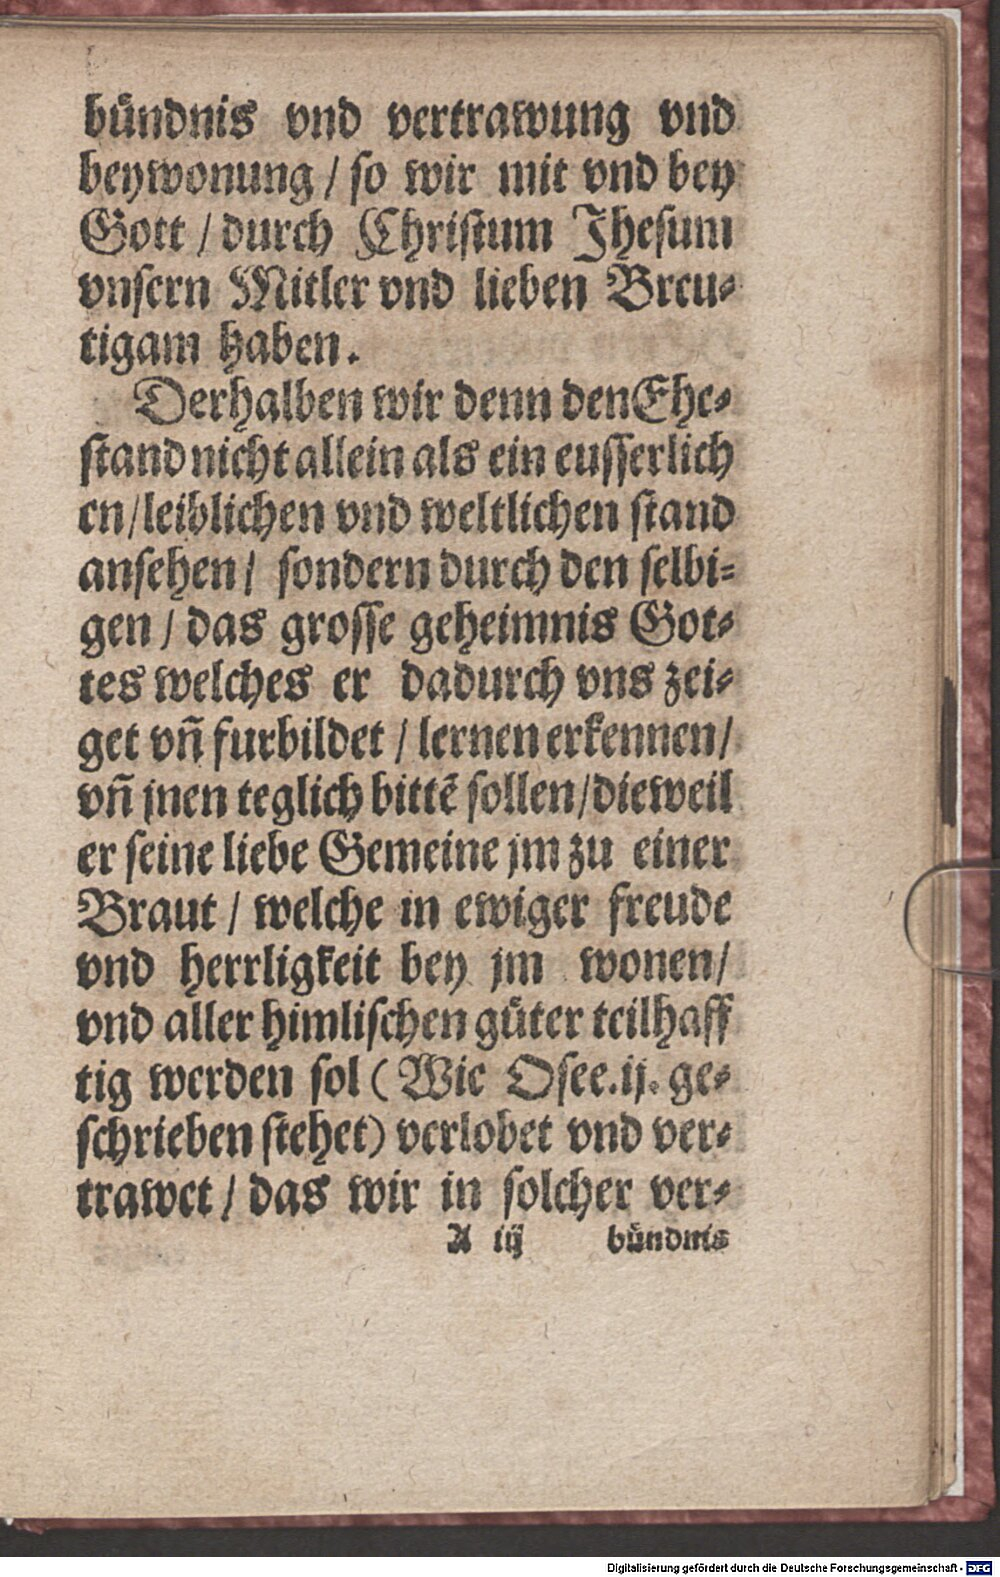 bündnis vnd vertrawung vnd
beywonung / so wir mit vnd bey
Gott / durch Christum Jhesum
vnsern Mitler vnd lieben Breu⸗
tigam haben.
Derhalben wir denn den Ehe⸗
stand nicht allein als ein eusserlich
en / leiblichen vnd weltlichen stand
ansehen / sondern durch den selbi⸗
gen / das grosse geheimnis Got⸗
tes welches er dadurch vns zei⸗
get vñ furbildet / lernen erkennen /
vñ jnen teglich bittẽ sollen / dieweil
er seine liebe Gemeine jm zu einer
Braut / welche in ewiger freude
vnd herrligkeit bey jm wonen /
vnd aller himlischen güter teilhaff
tig werden sol (Wie Osee.ij. ge⸗
schrieben stehet) verlobet vnd ver⸗
trawet / das wir in solcher ver⸗
A iij bündnis
Digitalisierung gefördert durch die Deutsche Forschungsgemeinschaft - DFG